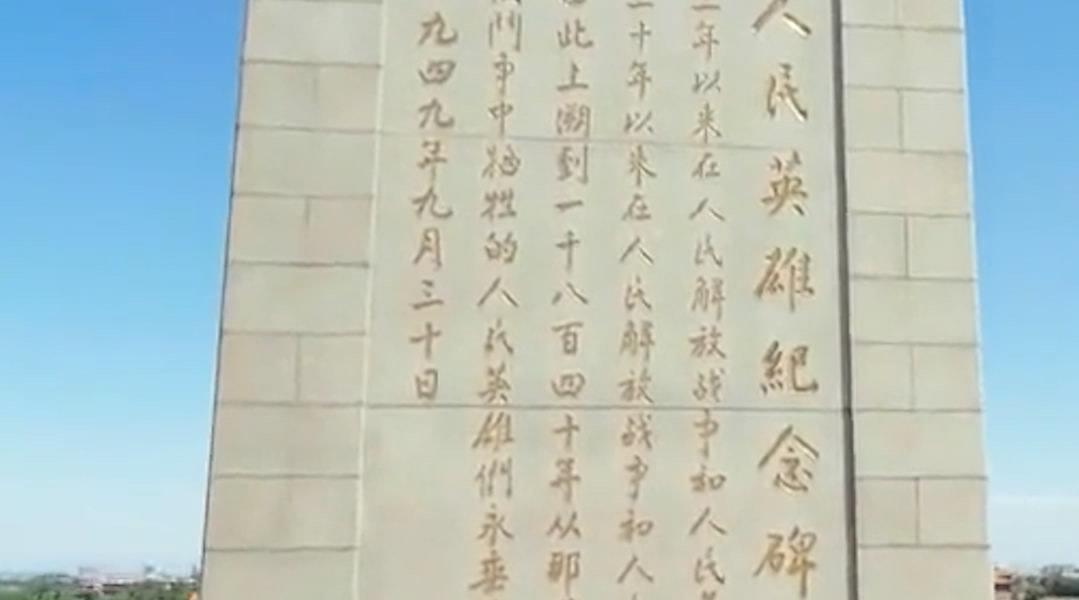 人民英雄紀念碑
年以来在人民解放战争和人民
十年以来在人民解放战争和人
此上溯到一千八百四十年从那
鬥争中牺牲的人民英雄們永垂
九四九年九月三十日